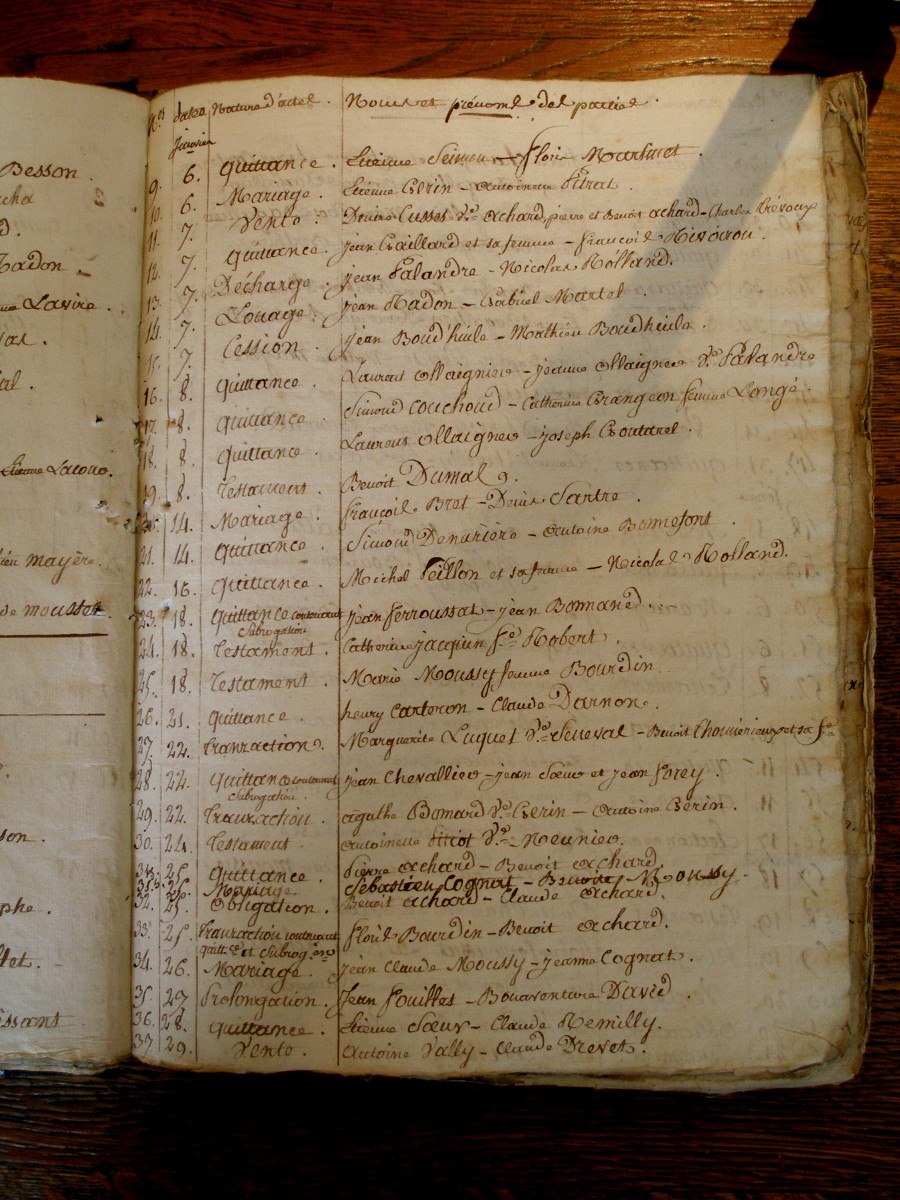 Besson
Lavire.
Mayère.
de mousset
N.os Dates Nature d'actes. Noms et prénoms des parties.
Janvier
9. 6. Quittance. Etienne Seimon — Floris Marsmet.
10. 6. Mariage. Etienne Gerin — Antoinette Pitrat.
11. 7. Vente. Denise Cusset V.ve Achard, pierre et Benoit Achard — Charles Trévoux
12. 7. Quittance. Jean Gaillard et sa femme — François
13. 7. Décharge. Jean Palandre — Nicolas Rolland.
14. 7. Louage. Jean Nadon — Gabriel Martel.
15. 7. Cession. Jean Boudhuile — Mathieu Boudhuile.
16. 8. Quittance. Laurent Ollaignier — Jeanne Ollaignier V.ve Palandre
17. 8. Quittance. Simond Couchoud — Catherine Grangeon femme Langé.
18. 8. Quittance. Laurent Ollaignier — Joseph Goutarel.
19. 8. Testament. Benoit Dumas.
20. 14. Mariage. François Bret — Denise Sartre.
21. 14. Quittance. Simond Denuzière — Antoine Bonnefont.
22. 16. Quittance. Michel Peillon et sa femme — Nicolas Rolland.
23. 18. Quittance contenant Subrogation Jean Ferroussat — Jean Bonnand.
24. 18. Testament. Catherine Jacquin f.e Robert.
25. 18. Testament. Marie Moussy femme Bourdin
26. 21. Quittance. henry Carteron — Claude Darnon.
27. 22. Tranzaction. Marguerite Luquet V.ve Seneval — Benoit Thomérieux et sa f.e
28. 22. Quittance contenant Subrogation. Jean Chevallier — Jean Sœur et Jean Forey.
29. 22. Tranzaction. agathe Bonnard V.ve Gerin — Antoine Gerin.
30. 24. Testament. Antoinette Pitiot V.ve Meunier.
31. 25. Quittance. Pierre Achard — Benoit Achard.
31.bis 25. Mariage. Sébastien Cognat — Benoite Moussy.
32. 25. Obligation. Benoit Achard — Claude Achard.
33. 25. Tranzaction contenant quitt.ce et Subrog.on Floris Bourdin — Benoit Achard.
34. 26. Mariage. Jean Claude Moussy — Jeanne Cognat.
35. 27. Prolongation. Jean Fouillet — Bonaventure David.
36. 28. Quittance. Etienne Sœur — Claude Remilly.
37. 29. Vente. Antoine Vally — Claude Drevet.